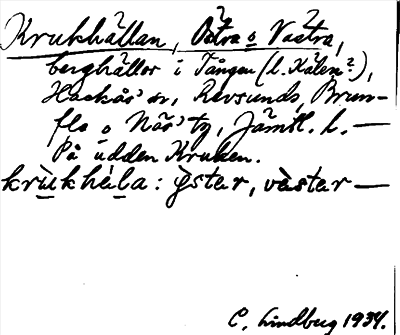 Krukhällan, Östra o Västra,
berghällor i Tången (l. Kälen?),
Hackås sn, Revsunds, Brun-
flo o Näs' tg, Jämtl. l. —
På udden Kruken.
krùkhàla: ỳstər, vàstar —
C. Lindberg 1934.